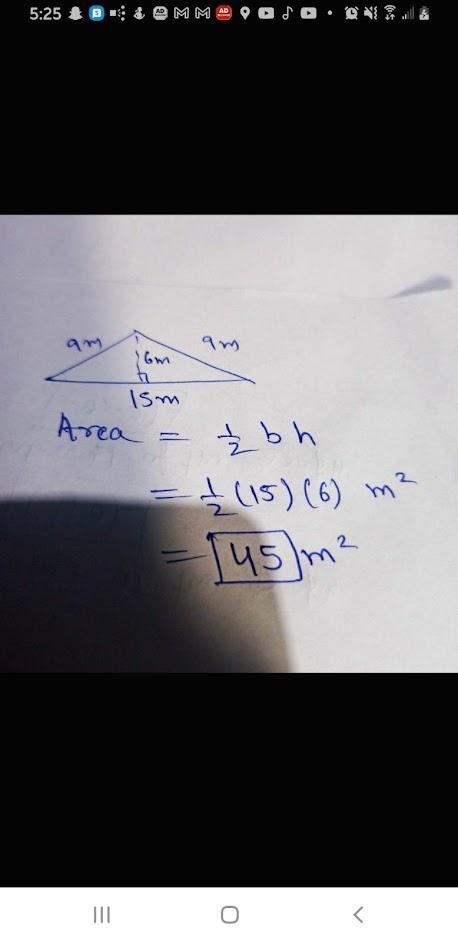 5:25
9m 9m
6m
15m
Area = 1/2 b h
= 1/2 (15) (6) m²
= 45 m²